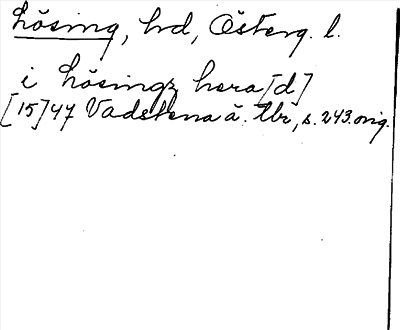 Lösing, hd, Österg. l.
i Lösingz hera[d]
[15]47 Vadstena ä. tbr, s. 243 orig.